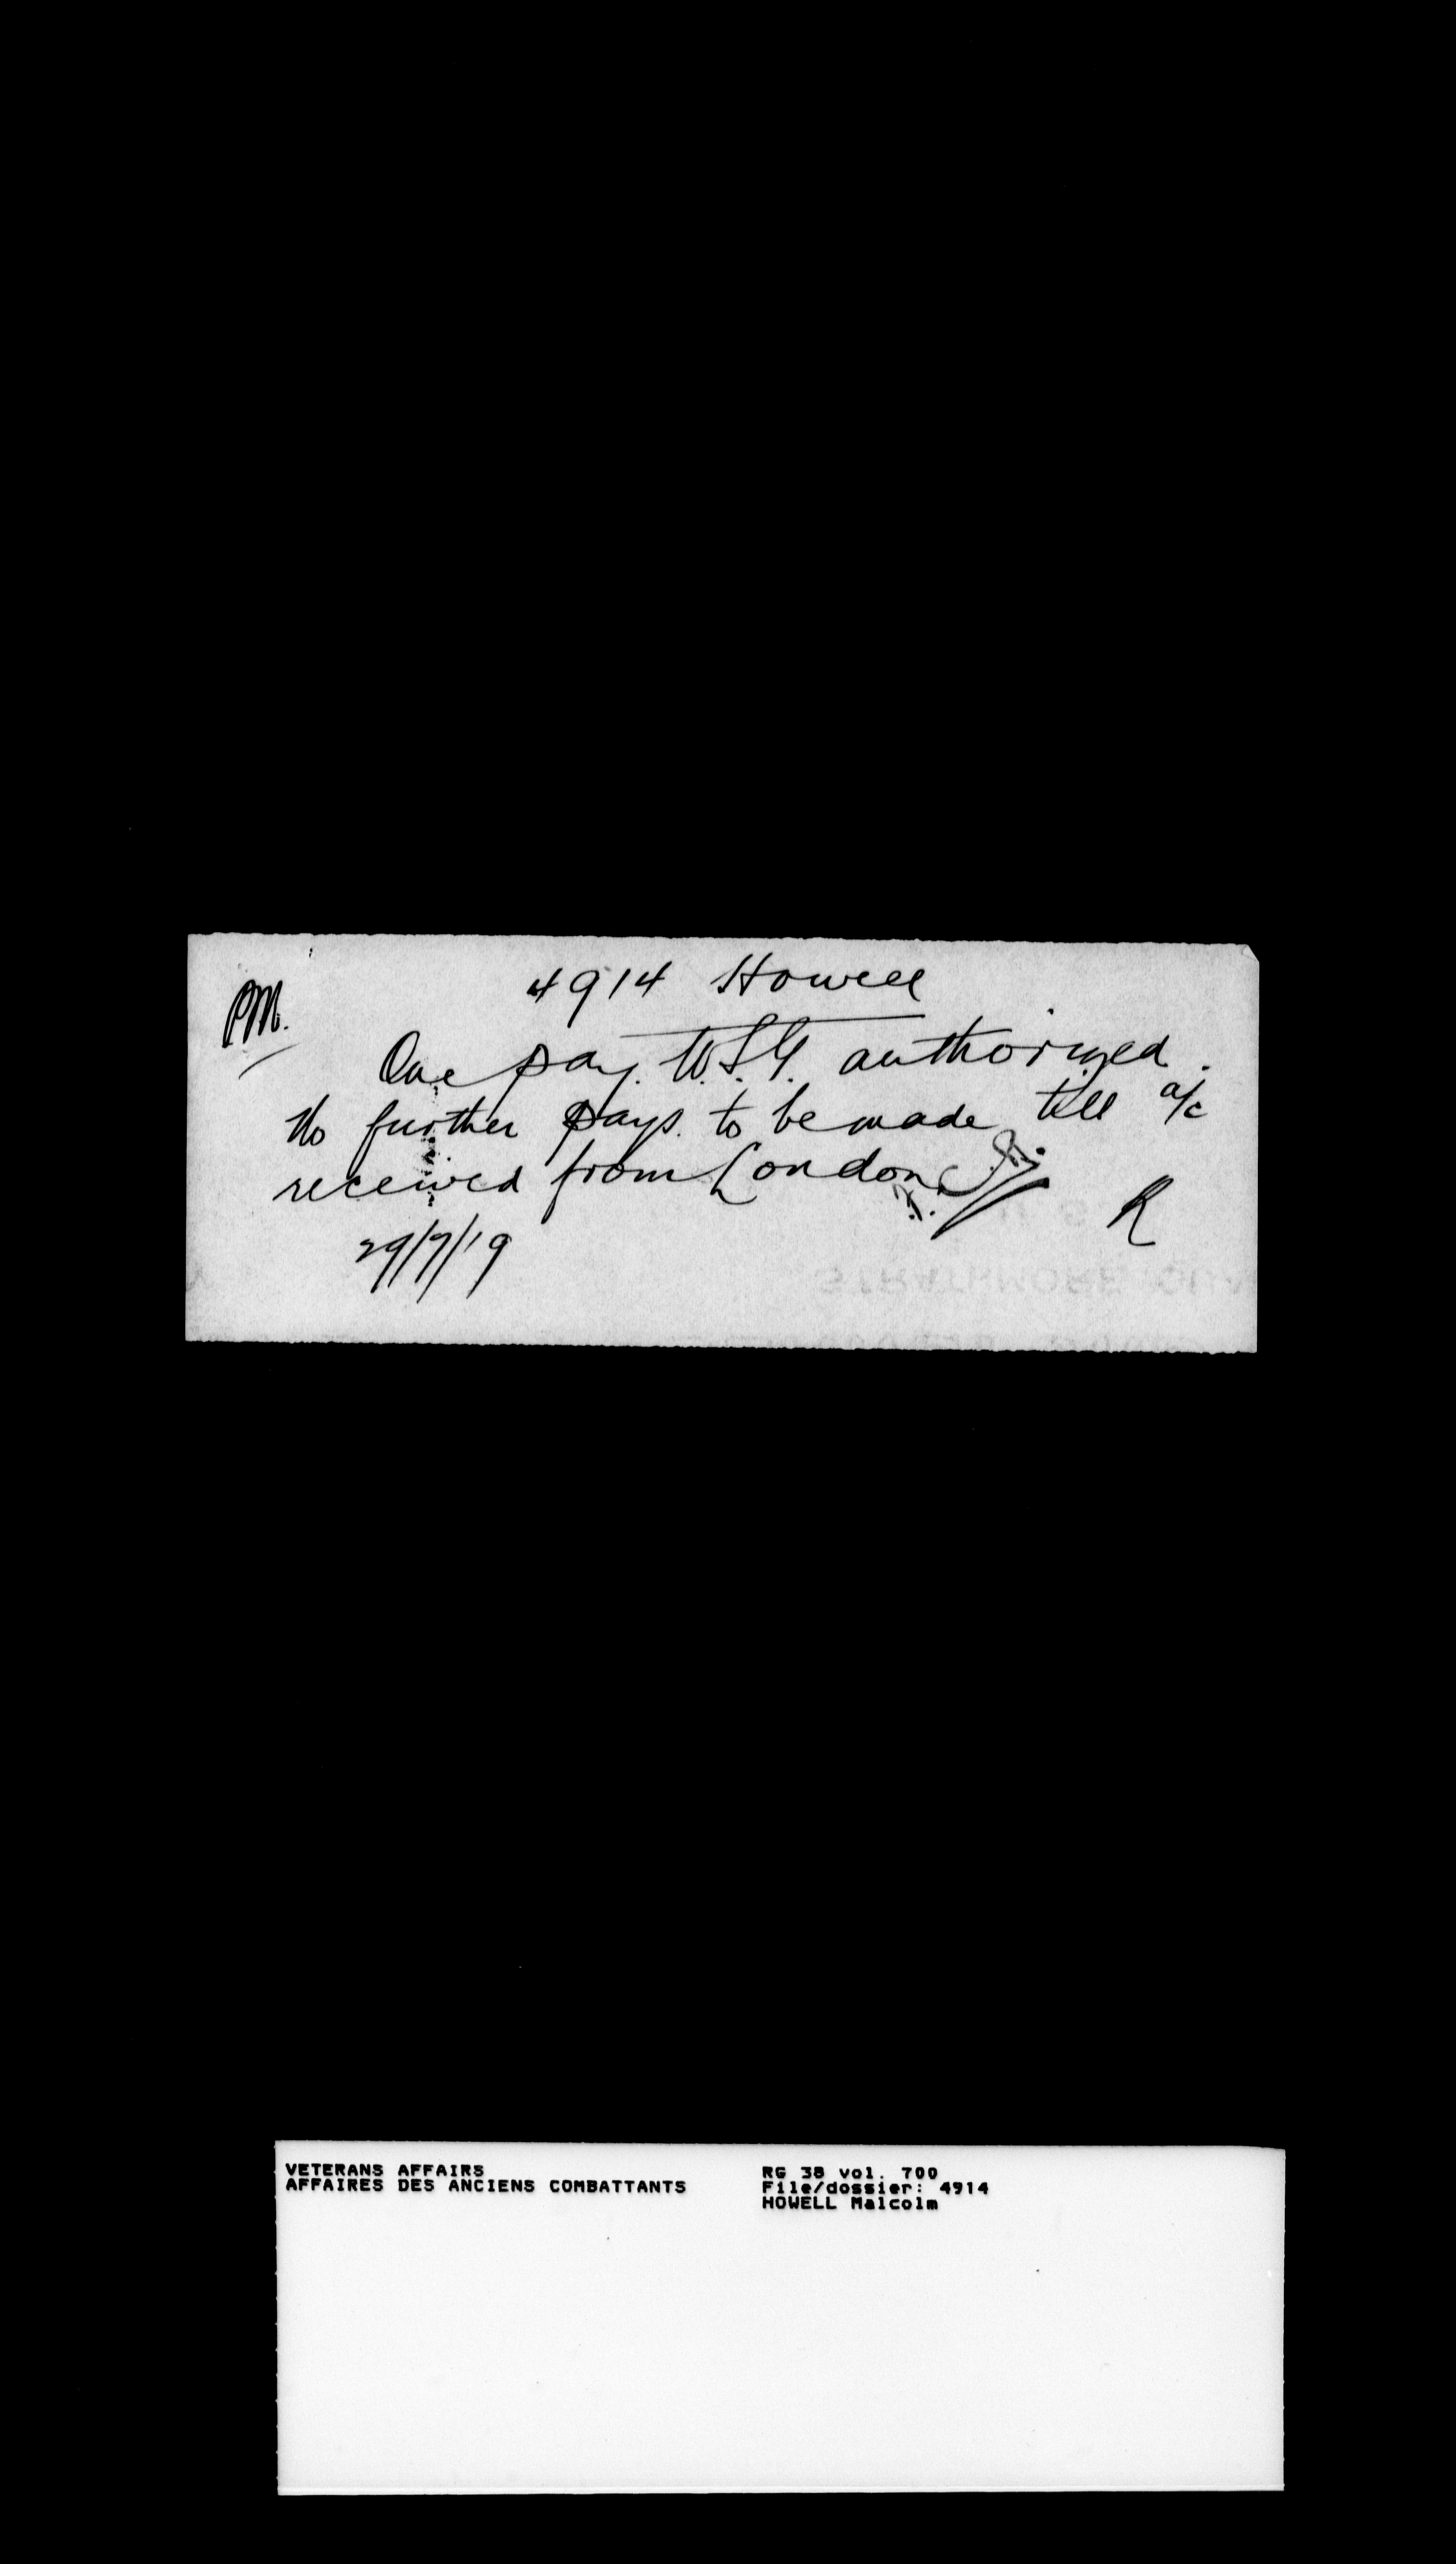 PM.
4914 Howell
One pay. W.S.G. authorized.
No further pays. to be made till a/c
received from London.
R
29/7/19
VETERANS AFFAIRS
AFFAIRES DES ANCIENS COMBATTANTS
RG 38 vol. 700
File/dossier: 4914
HOWELL Malcolm